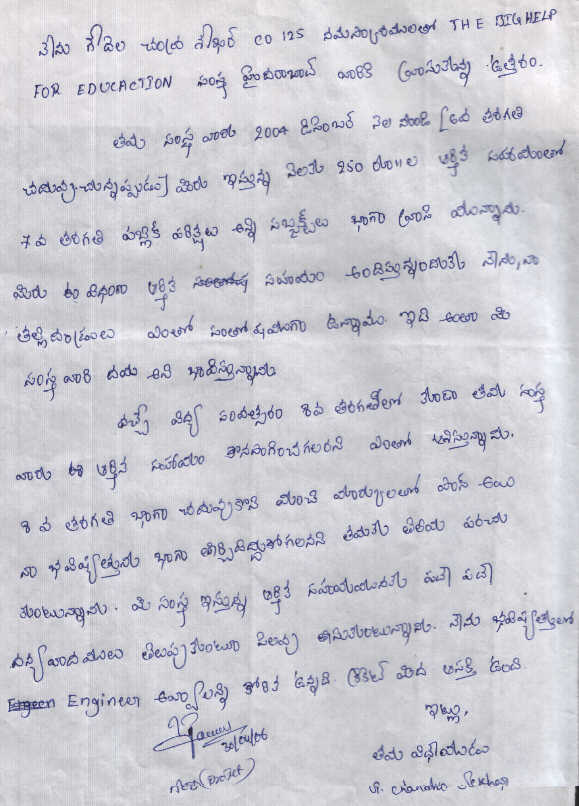 నేను గేదెల చంద్ర శేఖర్ CO 125 నమస్కారములతో THE BIG HELP
FOR EDUCACTION సంస్థ హైదరాబాద్ వారికి వ్రాసుతున్న ఉత్తరం.
తమ సంస్థ వారు 2004 డిసెంబర్ నెల నుండి [6వ తరగతి
చదువుచున్నప్పుడు] మీరు ఇస్తున్న నెలకు 250 రూ॥ల ఆర్థిక సహాయంతో
7వ తరగతి పబ్లిక్ పరిక్షలు అన్ని సబ్జక్ట్స్‌లు బాగా వ్రాసి యున్నాను.
మీరు ఈ విధంగా ఆర్థిక సహాయం అందిస్తున్నందుకు నేను, నా
తల్లిదండ్రులు ఎంతో సంతోషముగా ఉన్నాము. ఇది అంతా మీ
సంస్థ వారి దయ అని భావిస్తున్నాను
వచ్చే విద్య సంవత్సరం 8వ తరగతిలో కూడా తమ సంస్థ
వారు ఈ ఆర్థిక సహాయం కొనసాగించగలరని ఎంతో ఆశిస్తున్నాను.
8వ తరగతి బాగా చదువుకొని మంచి మార్కులతో పాస్ అయి
నా భవిష్యత్తును బాగా తీర్చిదిద్దుకోగలనని తమకు తెలియ పరచు
కుంటున్నాను. మీ సంస్థ ఇస్తున్న ఆర్థిక సహాయమునకు పదే పదే
ధన్యవాదములు తెలుపుకుంటూ సెలవు తీసుకుంటున్నాను. నేను భవిష్యత్తులో
Engineer అవ్వాలన్న కోరిక ఉన్నది. క్రికెట్ మీద ఆసక్తి ఉంది.
ఇట్లు,
30/04/06
తమ విధేయుడు
G. Chandra Sekhar